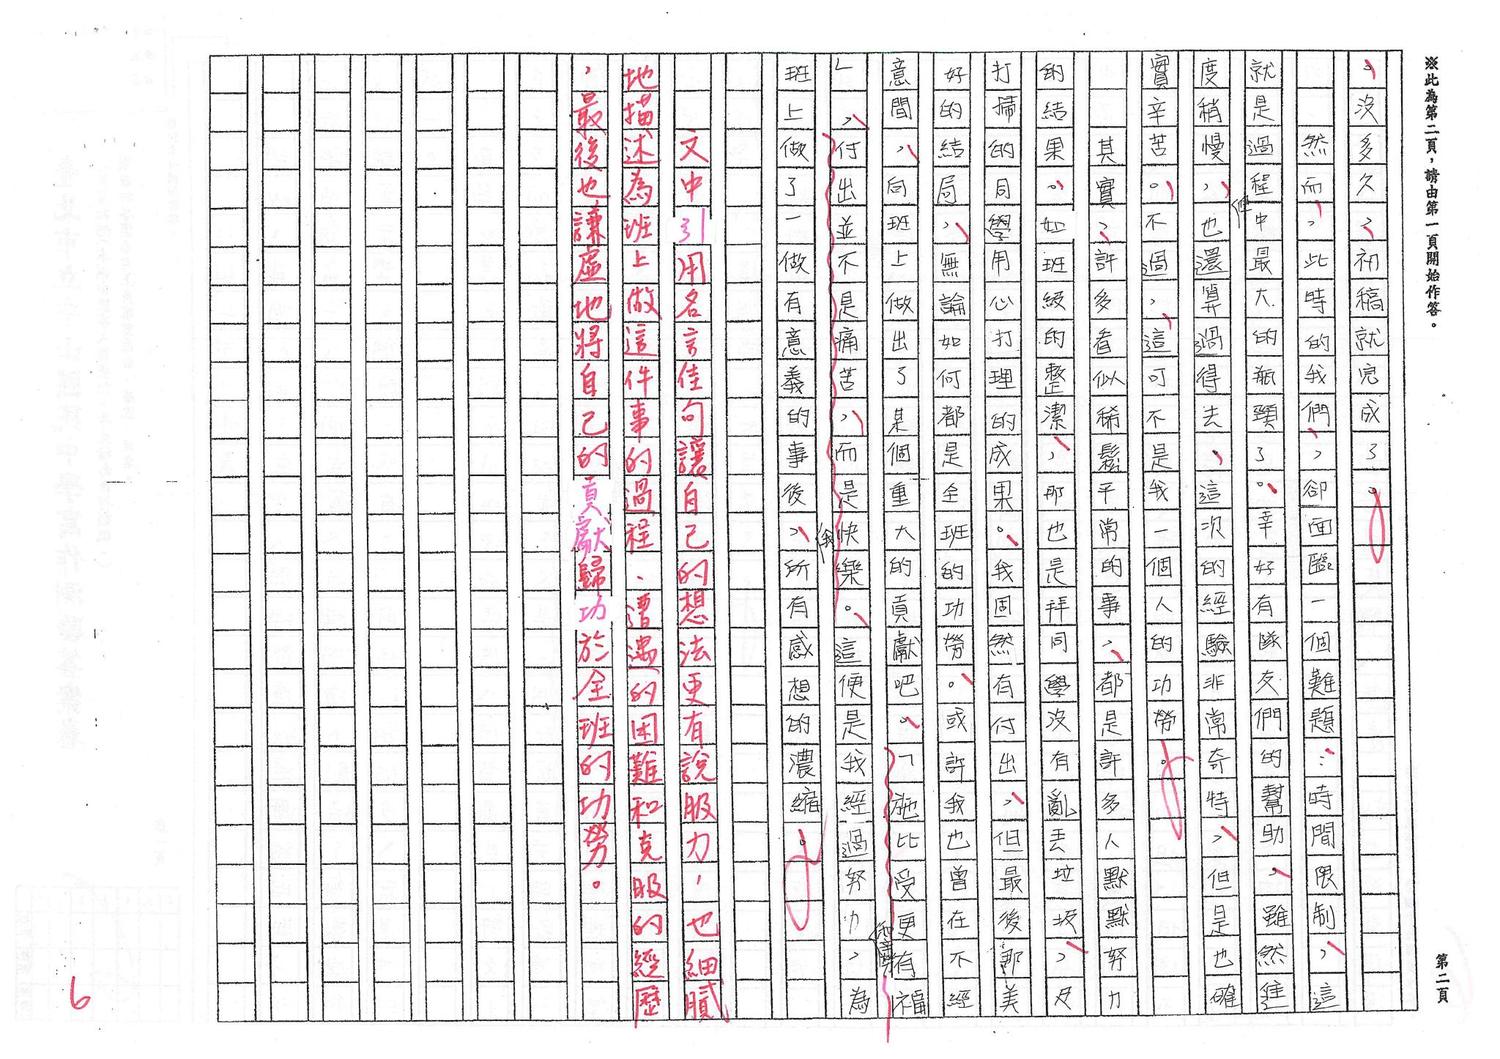 ※此為第二頁，請由第一頁開始作答。
第二頁
，沒多久，初稿就完成了。
然而，此時的我們，卻面臨一個難題：時間限制，這
就是過程中最大的瓶頸了。幸好有隊友們的幫助，雖然進
度稍慢，但也還算過得去，這次的經驗非常奇特，但是也確
實辛苦。不過，這可不是我一個人的功勞。
其實，許多看似稀鬆平常的事，都是許多人默默努力
的結果。如班級的整潔，那也是拜同學沒有亂丟垃圾，及
打掃的同學用心打理的成果。我固然有付出，但最後那美
好的結局，無論如何都是全班的功勞。或許我也曾在不經
意間，向班上做出了某個重大的貢獻吧。「施比受更有福
」，付出並不是痛苦，而是快樂。這便是我經過努力，為
班上做了一做有意義的事後，我所有感想的濃縮。
文中引用名言佳句讓自己的想法更有說服力，也細膩
地描述為班上做這件事的過程、遭遇的困難和克服的經歷
，最後也謙虛地將自己的貢獻歸功於全班的功勞。
6